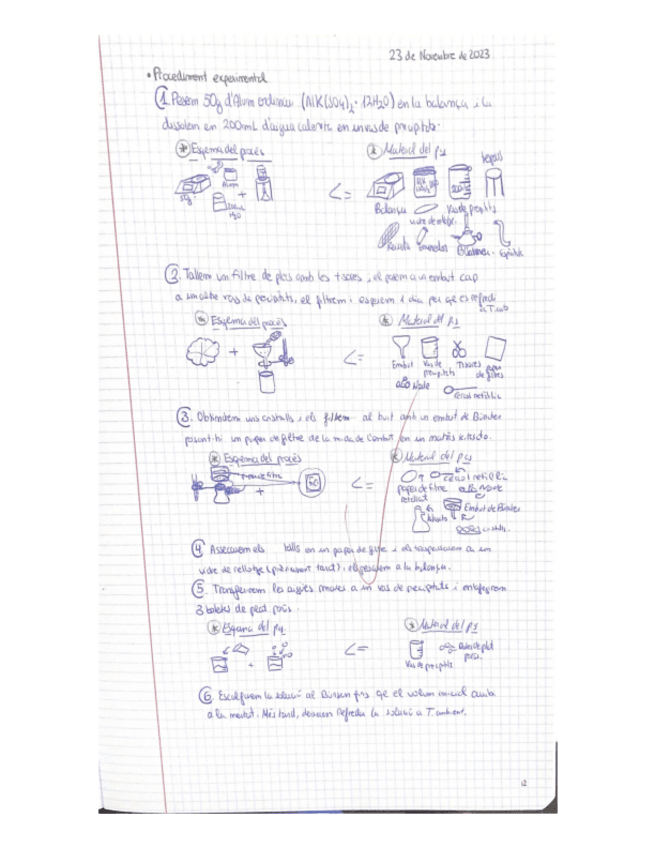 23 de Novembre de 2023
• Procediment experimental
1. Pesem 50g d'Alum ordinari (AlK(SO4)2 · 12H2O) en la balança i la
dissolem en 200mL d'aigua calenta en un vas de precipitats.
* Esquema del procés
* Material del p4
50g
Alum
+
H2O
<=
Balança
Vas de precipitats
vidre de rellotge
Espàtula
2. Tallem un filtre de plecs amb les tisores, i el posem a un embut cap
a un altre vas de precipitats, el filtrem i esperem 1 dia per que es refredi
a T. amb
* Esquema del procés
* Material del p5
+
<=
Embut
Vas de precipitats
Tisores
paper de filtres
Node
cèrcol metàl·lic
3. Obtindrem uns cristalls i els filtrem al buit amb un embut de Büchner
posant-hi un paper de filtre de la mida de l'embut, en un matràs kitasato.
* Esquema del procés
* Material del p4
paper filtre
+
<=
cèrcol metàl·lic
paper de filtre
retallat
Node
Embut de Büchner
Kitasato
4. Assecarem els talls en un paper de filtre i els traspassarem a un
vidre de rellotge (prèviament tarat), i el pesem a la balança.
5. Transferirem les aigües mares a un vas de precipitats i afegirem
3 boletes de plat porós.
* Esquema del p4
* Material del p5
+
<=
Vas de precipitats
Boles de plat
porós.
6. Escalfarem la solució al Bunsen fins que el volum inicial
a la meitat. Més tard, deixarem refredar la solució a T. ambient.
12